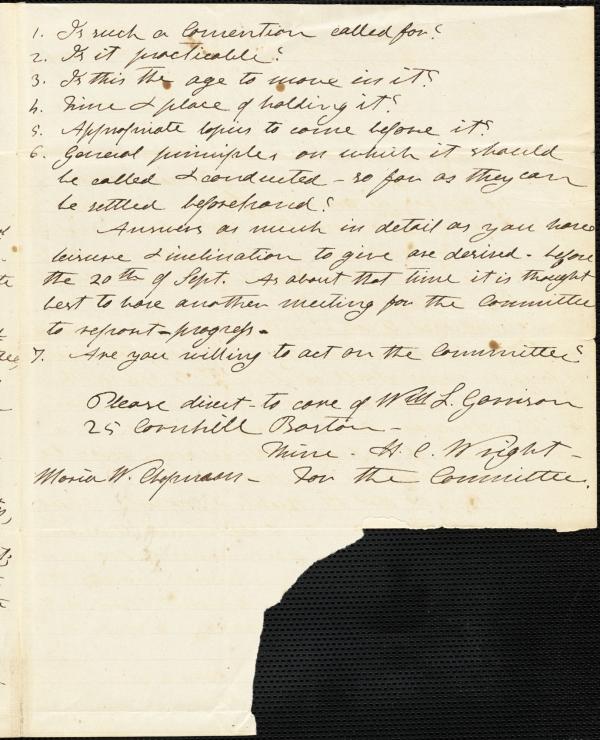 1. Is such a Convention called for?
2. Is it practicable?
3. Is this the age to move in it?
4. Time & place of holding it?
5. Appropriate topics to come before it?
6. General principles on which it should
be called & conducted - so far as they can
be settled beforehand?
Answers as much in detail as you have
leisure & inclination to give are desired - before
the 20th of Sept. As about that time it is thought
best to have another meeting for the Committee
to report - progress -
7. Are you willing to act on the Committee?
Please direct - to care of Wm L. Garrison
25 Cornhill Boston -
Thine - H. C. Wright -
Maria W. Chapman - For the Committee.